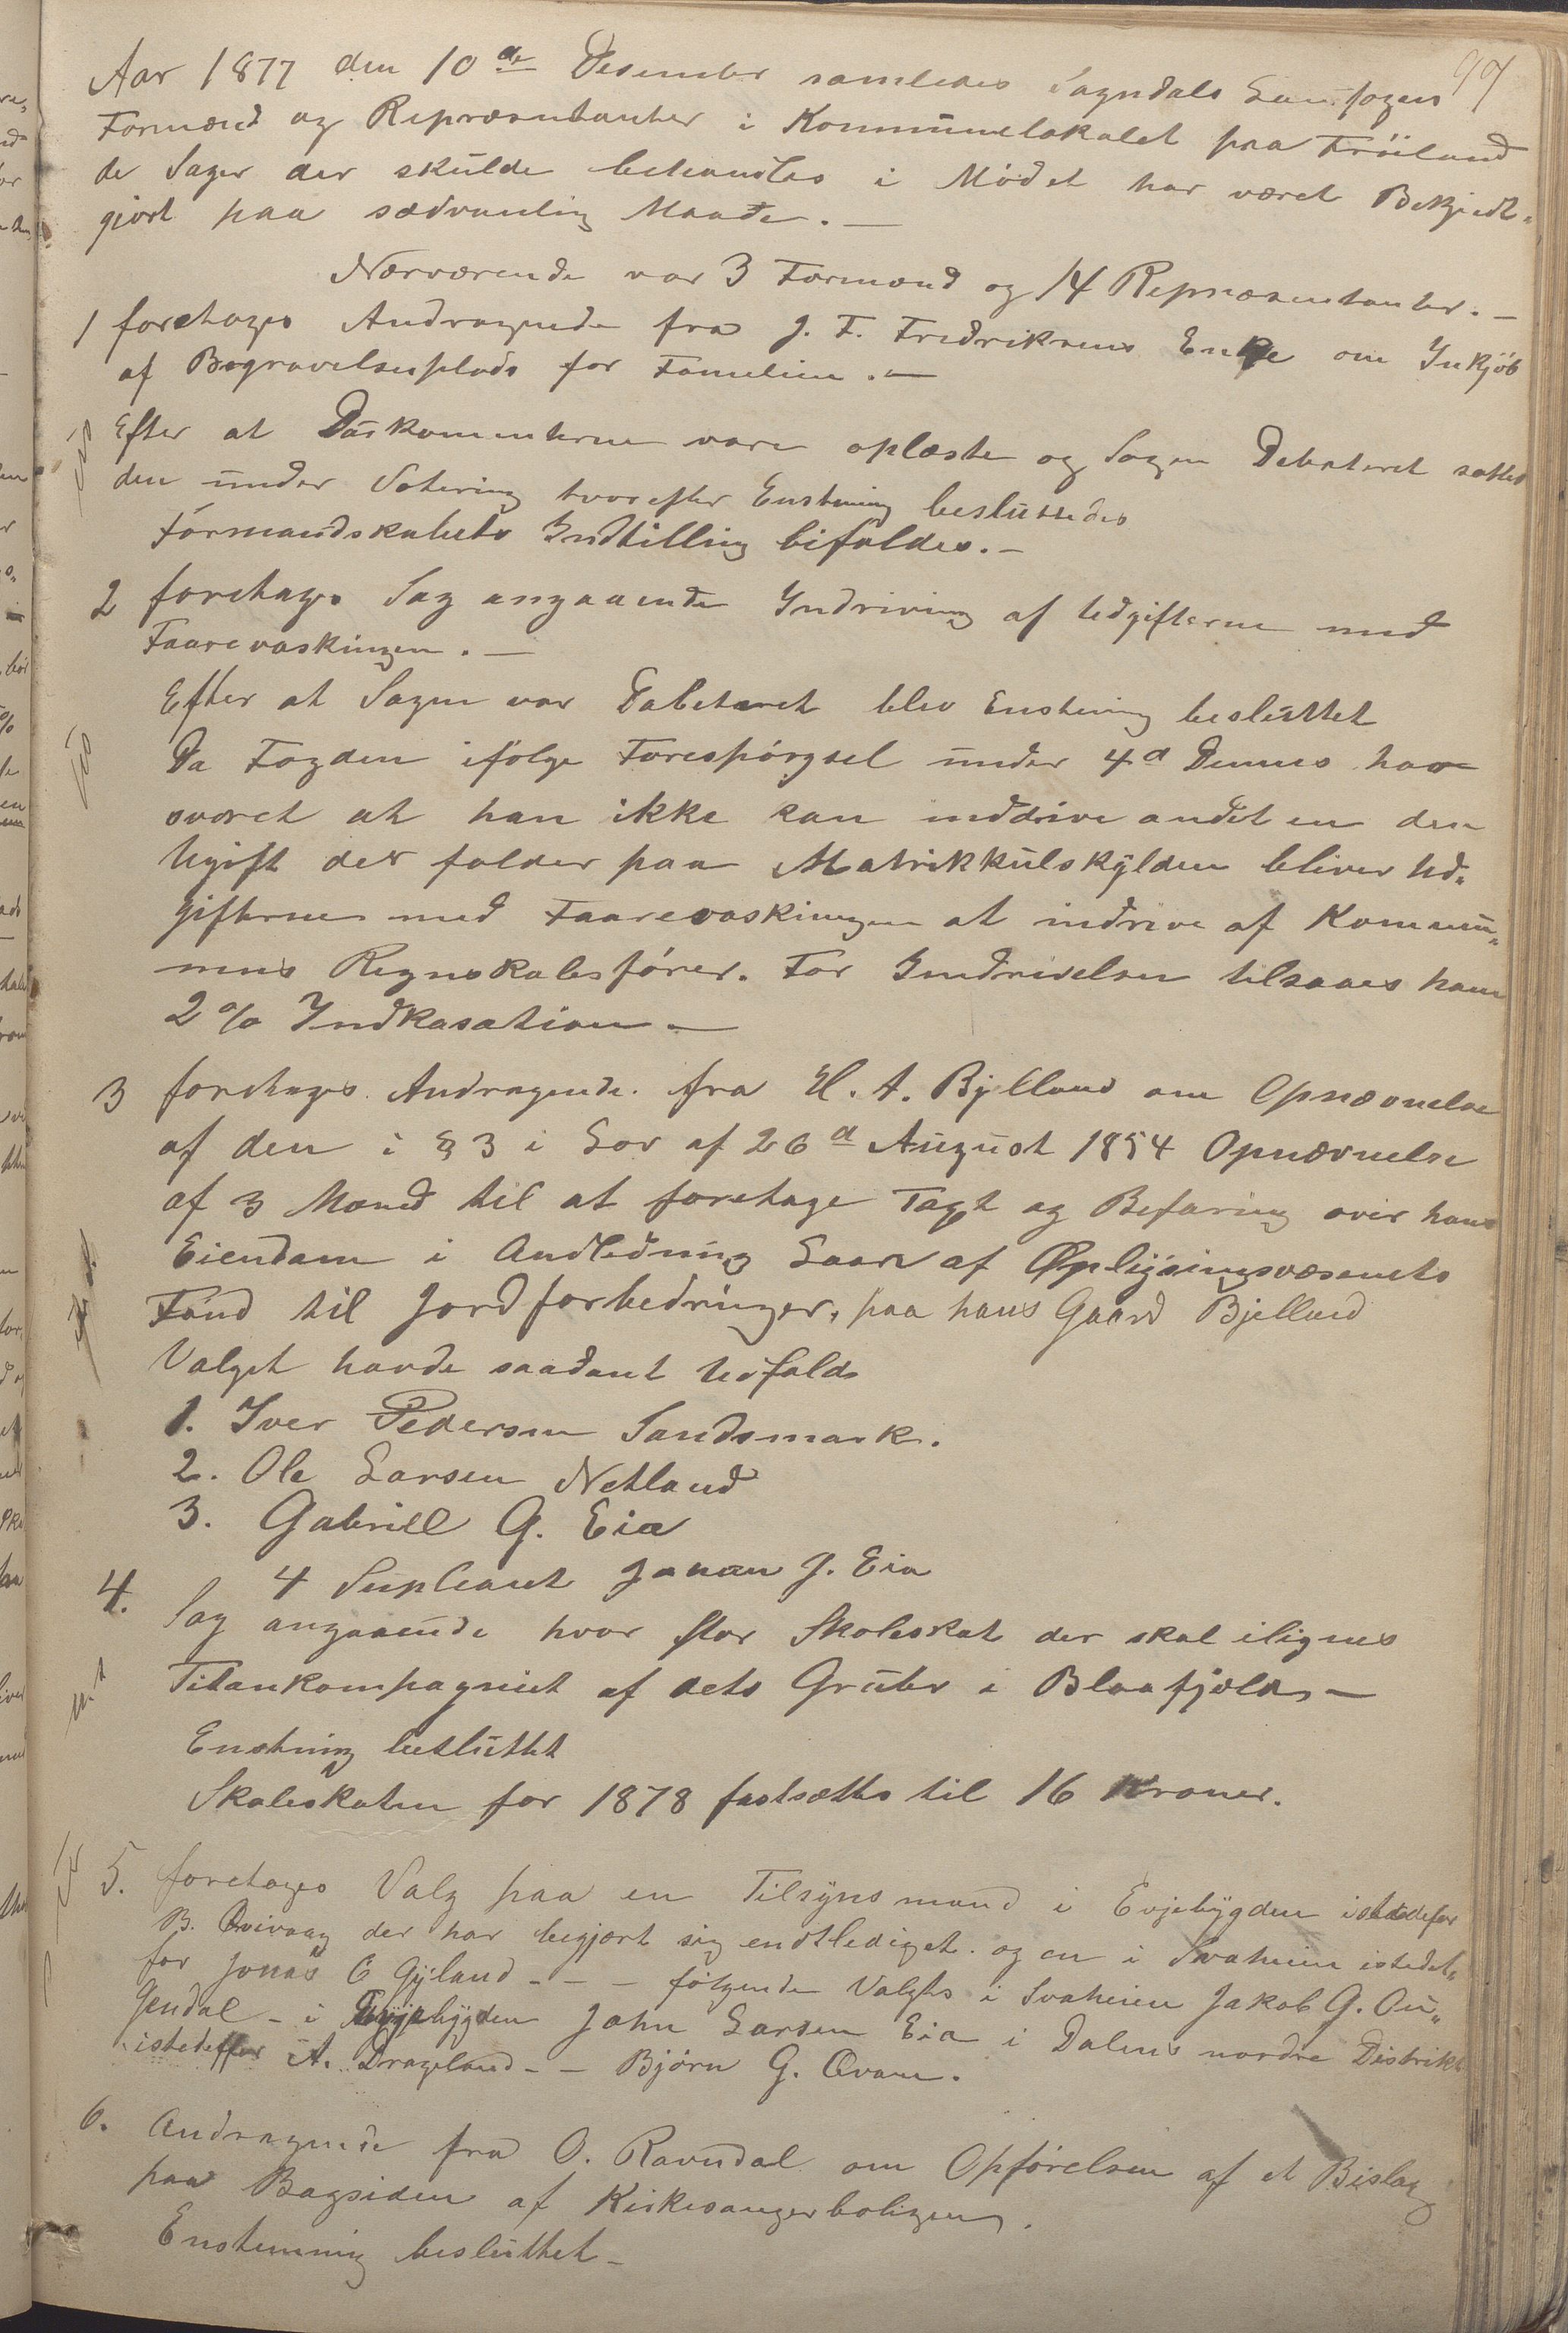 99
Aar 1877 den 10de Desember samledes Sogndals Landsogns
Formænd og Repræsentanter i Kommunelokalet paa Fröiland
de Sager der skulde behandles i Mödet har været Bekjendt-
gjort paa sædvanlig Maade. —
Nærværende var 3 Formænd og 14 Repræsentanter. —
1 foretages Andragende fra J. F. Fredriksens Enke om Inkjöb
af Begravelsesplads for Familien. —
Efter at Dokumenterne vare oplæste og Sagen Debateret sattes
den under Votering hvorefter Enstemig besluttedes
Formandskabets Indstilling bifaldes. —
2 foretages Sag angaaende Indriving af Udgifterne med
Faarevaskingen. —
Efter at Sagen var Debateret blev Enstemig besluttet
Da Fogden ifölge Forespörgsel under 4d Dennes have
svaret at han ikke kan inddrive andet en den
Ugift der falder paa Matrikkulskylden bliver Ud-
gifterne med Faarevaskingen at indrive af Kommu-
nens Regnskabsförer. For Inddrivelsen tilstaaes ham
2 % Indkasation —
3 foretages Andragende fra H. A. Bjelland om Opnævnelse
af den i § 3 i Lov af 26d August 1854 Opnævnelse
af 3 Mænd til at foretage Taxt og Befaring over hans
Eiendom i Andledning Laan af Oplysningsvæsenets
Fond til Jordforbedringer, paa hans Gaard Bjelland
Valget havde saadant Udfald
1. Iver Pedersen Sandsmark.
2. Ole Larsen Netland
3. Gabriell G. Eia
4 Supleant Johan J. Eia
4. Sag angaaende hvor stor Skoleskat der skal ilignes
Titankompagniet af dets Gruber i Blaafjeld, —
Enstemig besluttet
Skoleskaten for 1878 fastsættes til 16 Kroner.
5. foretages Valg paa en Tilsynsmand i Evjebygden istedefor
B. Qvivaag der har begjært sig endtlediget. og en i Svaheien istedet-
for Jonas O Gyland - - - fölgende Valgtes i Svaheien Jakob G. Ou-
gendal - i Evjebygden John Larsen Eia i Dalens nordre Distrikt
istedeffor A. Drageland - - Björn G. Ovare.
6. Andragende fra O. Ravndal om Opförelsen af et Bislag
paa Bagsiden af Kirkesangerboligen.
Enstemmig besluttet —